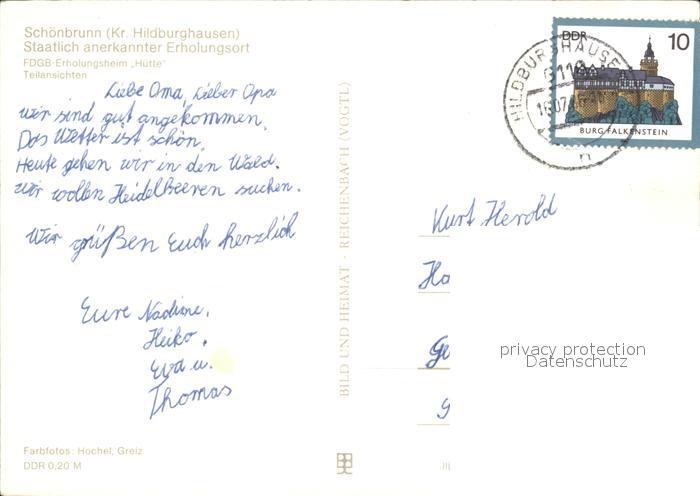 Schönbrunn (Kr. Hildburghausen)
Staatlich anerkannter Erholungsort
FDGB-Erholungsheim „Hütte"
Teilansichten
Liebe Oma, Lieber Opa
wir sind gut angekommen.
Das Wetter ist schön.
Heute gehen wir in den Wald.
Wir wollen Heidelbeeren suchen.
Wir grüßen Euch herzlich
Eure Nadine,
Heiko,
Eva u.
Thomas
Farbfotos: Hochel, Greiz
DDR 0,20 M
BILD UND HEIMAT · REICHENBACH (VOGTL)
HILDBURGHAUSE
DDR
10
BURG FALKENSTEIN
n
Kurt Herold
Ha
Ge
9
privacy protection
Datenschutz